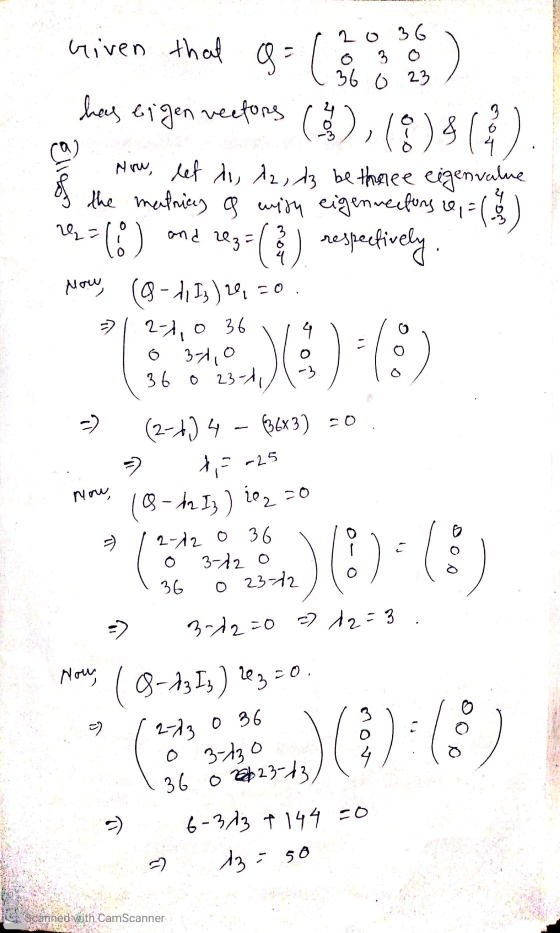 Given that Q = ( 2 0 36
0 3 0
36 0 23 )
has eigen vectors ( 4 0 -3 ), ( 0 1 0 ) & ( 3 0 4 ).
(a)
Now, let λ1, λ2, λ3 be three eigenvalue
of the matrices Q with eigenvectors v1 = ( 4 0 -3 )
v2 = ( 0 1 0 ) and v3 = ( 3 0 4 ) respectively.
Now, (Q - λ1 I3) v1 = 0.
⇒ ( 2-λ1 0 36
0 3-λ1 0
36 0 23-λ1 ) ( 4 0 -3 ) = ( 0 0 0 )
⇒ (2-λ1) 4 - (36×3) = 0.
⇒ λ1 = -25
Now, (Q - λ2 I3) v2 = 0
⇒ ( 2-λ2 0 36
0 3-λ2 0
36 0 23-λ2 ) ( 0 1 0 ) = ( 0 0 0 )
⇒ 3-λ2 = 0 ⇒ λ2 = 3.
Now, (Q - λ3 I3) v3 = 0.
⇒ ( 2-λ3 0 36
0 3-λ3 0
36 0 23-λ3 ) ( 3 0 4 ) = ( 0 0 0 )
⇒ 6-3λ3 + 144 = 0
⇒ λ3 = 50
Scanned with CamScanner